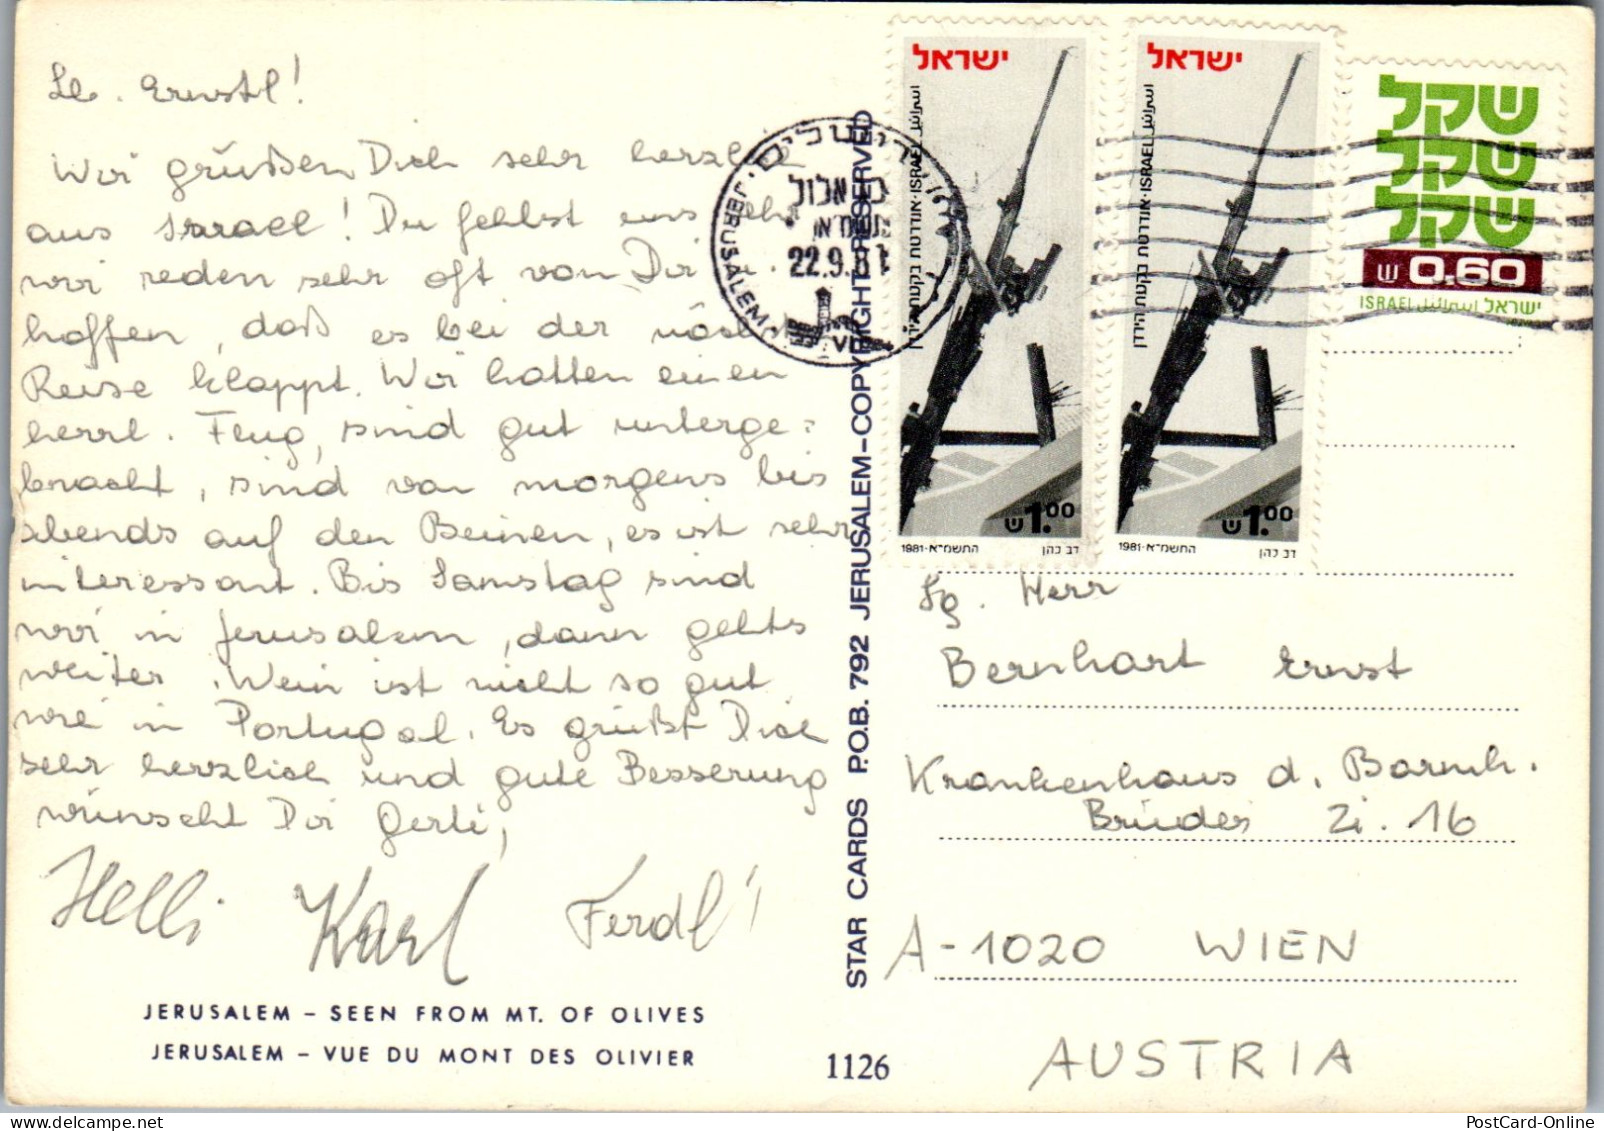 Lb. Ernstl!
Wir grüßen Dich sehr herzlich
aus Israel! Du fehlst uns sehr
wir reden sehr oft von Dir u.
hoffen, daß es bei der näch
Reise klappt. Wir hatten einen
herrl. Flug, sind gut unterge=
bracht, sind von morgens bis
abends auf den Beinen, es ist sehr
interessant. Bis Samstag sind
wir in Jerusalem, dann gehts
weiter. Wein ist nicht so gut
wie in Portugal. Es grüßt Dich
sehr herzlich und gute Besserung
wünscht Dir Gerti,
Helli Karl Ferdl
JERUSALEM – SEEN FROM MT. OF OLIVES
JERUSALEM – VUE DU MONT DES OLIVIER
1126
STAR CARDS P.O.B. 792 JERUSALEM–COPYRIGHT RESERVED
ירושלים
אלול
22.9.81
JERUSALEM
ישראל
اسرائيل ISRAEL · אנדרטת בקעת הירדן
ש 1.00
1981-התשמ"א
דב כהן
ישראל
اسرائيل ISRAEL · אנדרטת בקעת הירדן
ש 1.00
1981-התשמ"א
דב כהן
שקל
שקל
שקל
ש 0.60
ISRAEL اسرائيل ישראל
Sg. Herr
Bernhart Ernst
Krankenhaus d. Barmh.
Brüder Zi. 16
A-1020 WIEN
AUSTRIA
PostCard-Online